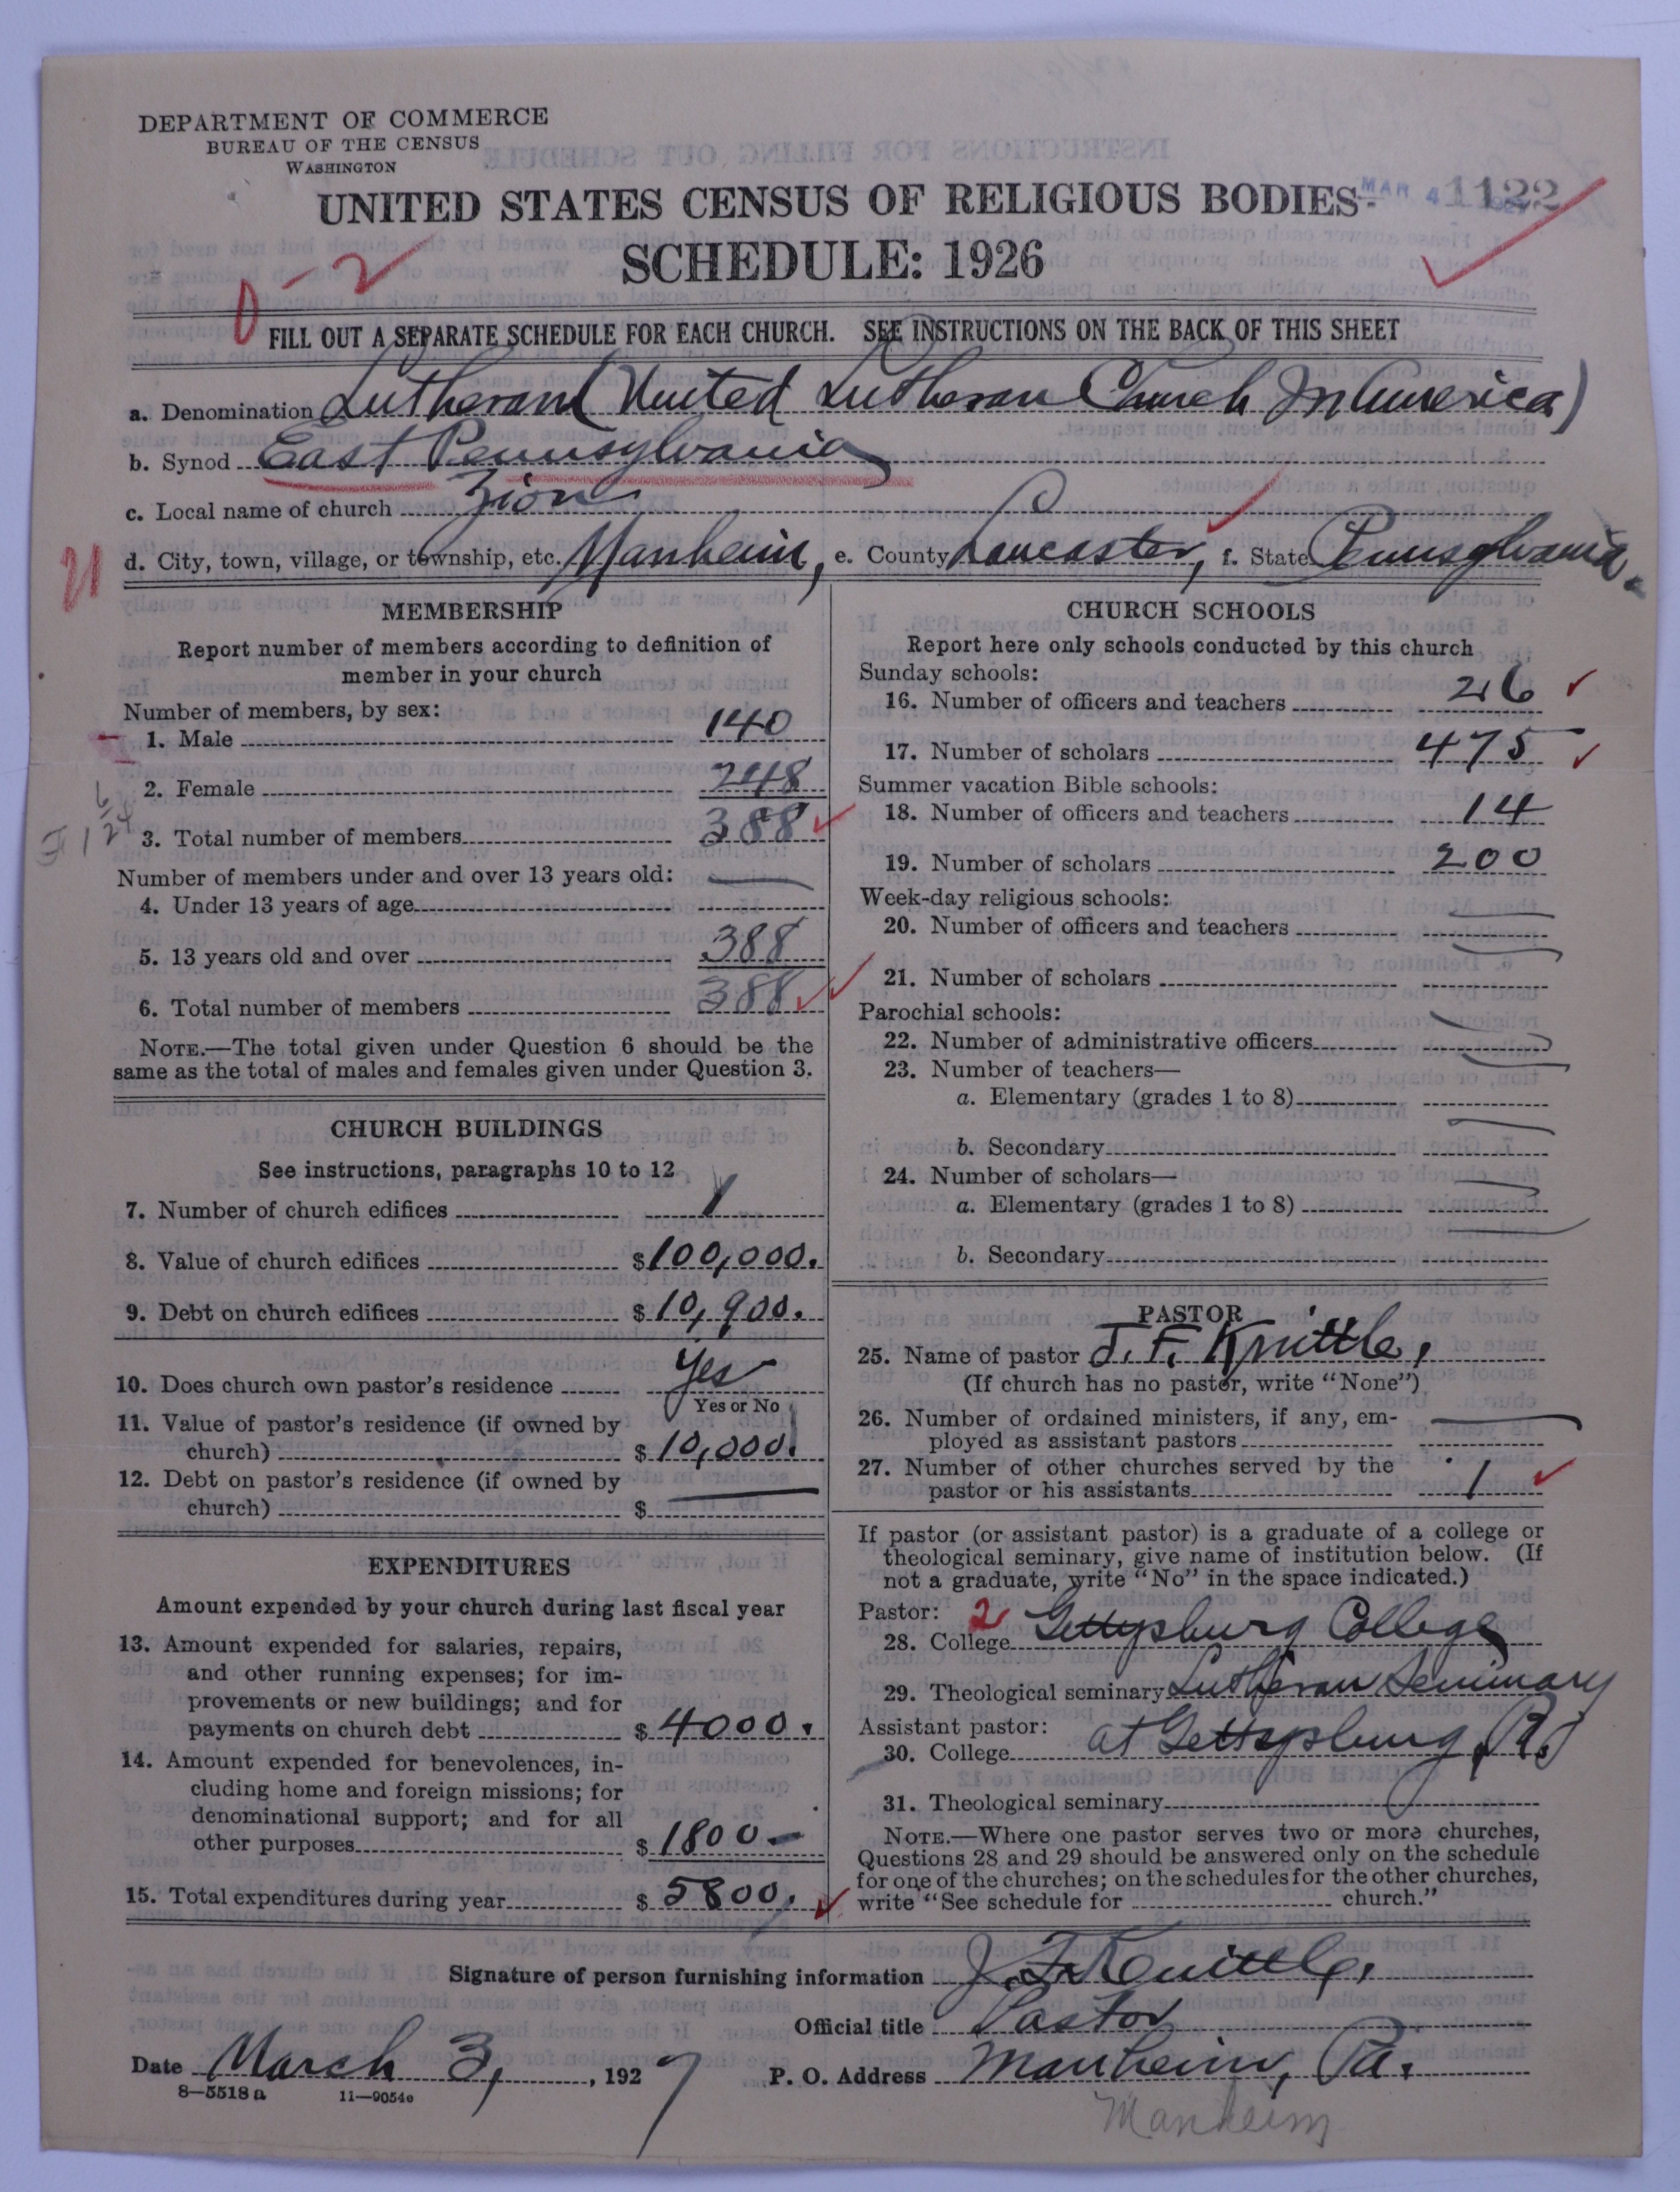 DEPARTMENT OF COMMERCE
BUREAU OF THE CENSUS
WASHINGTON
UNITED STATES CENSUS OF RELIGIOUS BODIES
MAR 4 1122
SCHEDULE: 1926
0-2
FILL OUT A SEPARATE SCHEDULE FOR EACH CHURCH. SEE INSTRUCTIONS ON THE BACK OF THIS SHEET
a. Denomination Lutheran (United Lutheran Church In America)
b. Synod East Pennsylvania
c. Local name of church Zion
d. City, town, village, or township, etc. Manheim, e. County Lancaster, f. State Pennsylvania.
MEMBERSHIP
Report number of members according to definition of
member in your church
Number of members, by sex:
1. Male 140
2. Female 248
3. Total number of members 388
Number of members under and over 13 years old:
4. Under 13 years of age —
5. 13 years old and over 388
6. Total number of members 388
NOTE.—The total given under Question 6 should be the
same as the total of males and females given under Question 3.
CHURCH BUILDINGS
See instructions, paragraphs 10 to 12
7. Number of church edifices 1
8. Value of church edifices $100,000.
9. Debt on church edifices $10,900.
10. Does church own pastor's residence Yes
Yes or No
11. Value of pastor's residence (if owned by
church) $10,000.
12. Debt on pastor's residence (if owned by
church) $ —
EXPENDITURES
Amount expended by your church during last fiscal year
13. Amount expended for salaries, repairs,
and other running expenses; for im-
provements or new buildings; and for
payments on church debt $4000.
14. Amount expended for benevolences, in-
cluding home and foreign missions; for
denominational support; and for all
other purposes $1800—
15. Total expenditures during year $5800.
CHURCH SCHOOLS
Report here only schools conducted by this church
Sunday schools:
16. Number of officers and teachers 26
17. Number of scholars 475
Summer vacation Bible schools:
18. Number of officers and teachers 14
19. Number of scholars 200
Week-day religious schools:
20. Number of officers and teachers —
21. Number of scholars —
Parochial schools:
22. Number of administrative officers —
23. Number of teachers—
a. Elementary (grades 1 to 8) —
b. Secondary —
24. Number of scholars—
a. Elementary (grades 1 to 8) —
b. Secondary —
PASTOR
25. Name of pastor J. F. Knittle,
(If church has no pastor, write "None")
26. Number of ordained ministers, if any, em-
ployed as assistant pastors —
27. Number of other churches served by the
pastor or his assistants 1
If pastor (or assistant pastor) is a graduate of a college or
theological seminary, give name of institution below. (If
not a graduate, write "No" in the space indicated.)
Pastor: 2
28. College Gettysburg College
29. Theological seminary Lutheran Seminary
Assistant pastor:
30. College at Gettysburg, Pa.
31. Theological seminary
NOTE.—Where one pastor serves two or more churches,
Questions 28 and 29 should be answered only on the schedule
for one of the churches; on the schedules for the other churches,
write "See schedule for church."
Signature of person furnishing information J. F. Knittle,
Official title Pastor
Date March 3, 1927 P. O. Address Manheim, Pa.
8—5518a 11—9054
Manheim